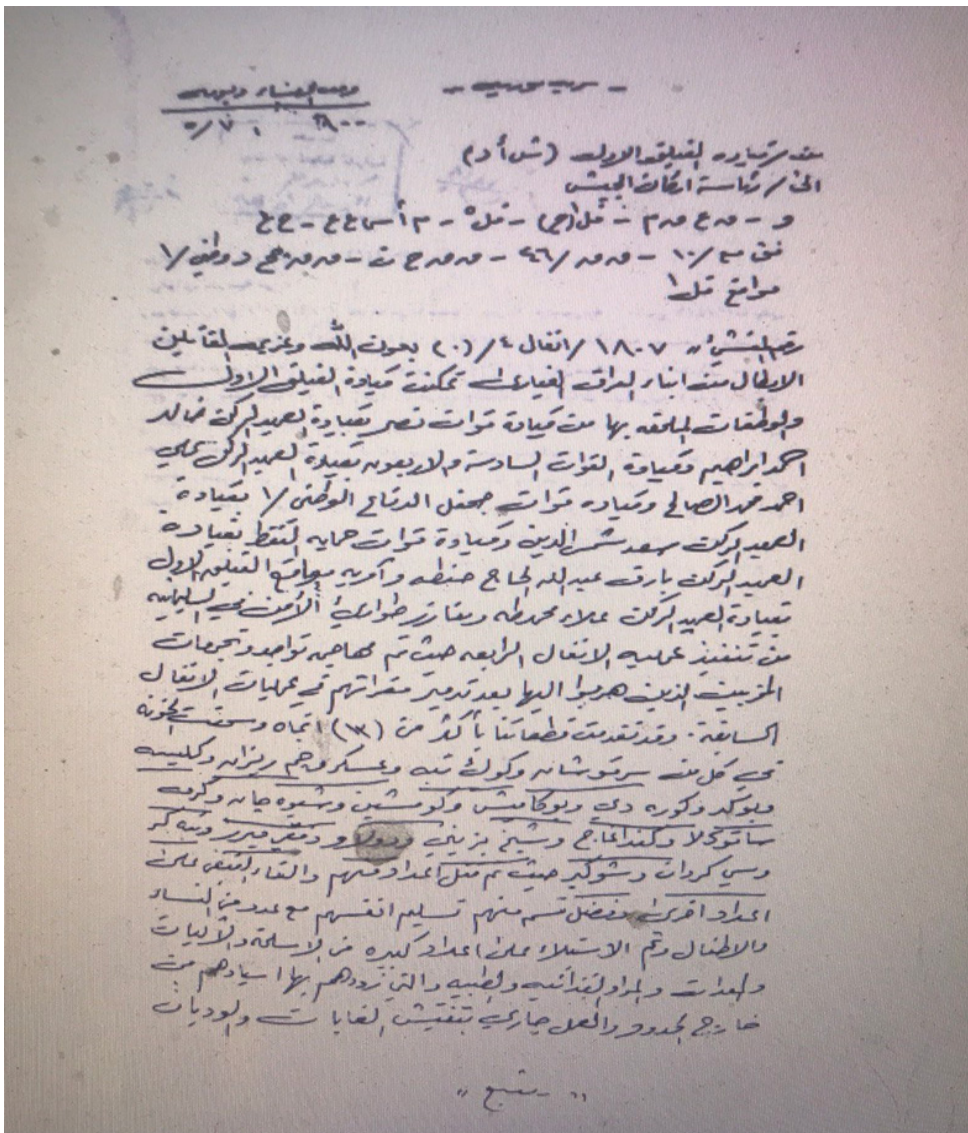 - سري وفوري -
وقت الانشاء ويومه
١٨٠٠ / ٧ /٥
من / قيادة الفيلق الاول (ش أ د)
الى / رئاسة اركان الجيش
و - م ع م م - فل١ (ج) - فل٥ - م أ س ع ع - ح ع
فق مع /١٠ - ف مه /٤٦ - ق ق ح ن - ق ق جحفل د وطني /١
مواقع فل١
رقم المنشئ ،، ١٨٠٧ /انفال ٤/(٠) بعون الله وعزيمة المقاتلين
الابطال من ابناء العراق الغيارى تمكنت قيادة الفيلق الاول
والقطعات الملحقه بها من قيادة قوات نصر بقيادة العميد الركن خالد
احمد ابراهيم وقيادة القوات السادسة والاربعون بقيادة العميد الركن علي
احمد محمد الصالح وقيادة قوات جحفل الدفاع الوطني /١ بقيادة
العميد الركن سعد شمس الدين وقيادة قوات حماية النفط بقيادة
العميد الركن بارق عبدالله الحاج حنطه وآمرية مواقع الفيلق الاول
بقيادة العميد الركن علاء محمد طه ومفارز طوارئ الأمن في السليمانيه
من تنفيذ عمليه الانفال الرابعه حيث تم مهاجمه تواجد وتجمعات
المخربين الذين هربوا اليها بعد تدمير مقراتهم في عمليات الانفال
السابقة . وقد تقدمت قطعاتنا بأكثر من (١٣) اتجاه وسحقت الخونه
في كل من سرقوشان وكوك تبه وعسكر وچم ريزان وكليسه
وبوكد وكوره دي وبوكاميش وكومشين وشيوه جان وكرد
ساتوكلا وكند الحاج وشيخ بزيني ودولي و ميرر وتبه كر
وسي كردان وشوكير حيث تم قتل اعداد منهم والقاء القبض على
اعداد اخرى وفضل قسم منهم تسليم انفسهم مع عدد من النساء
والاطفال وتم الاستيلاء على اعداد كبيره من الاسلحة والآليات
والمعدات والمواد الغذائيه والطبيه والتي زودهم بها اسيادهم من
خارج الحدود والعمل جاري بتفتيش الغابات والوديان
،، يتبع ،،